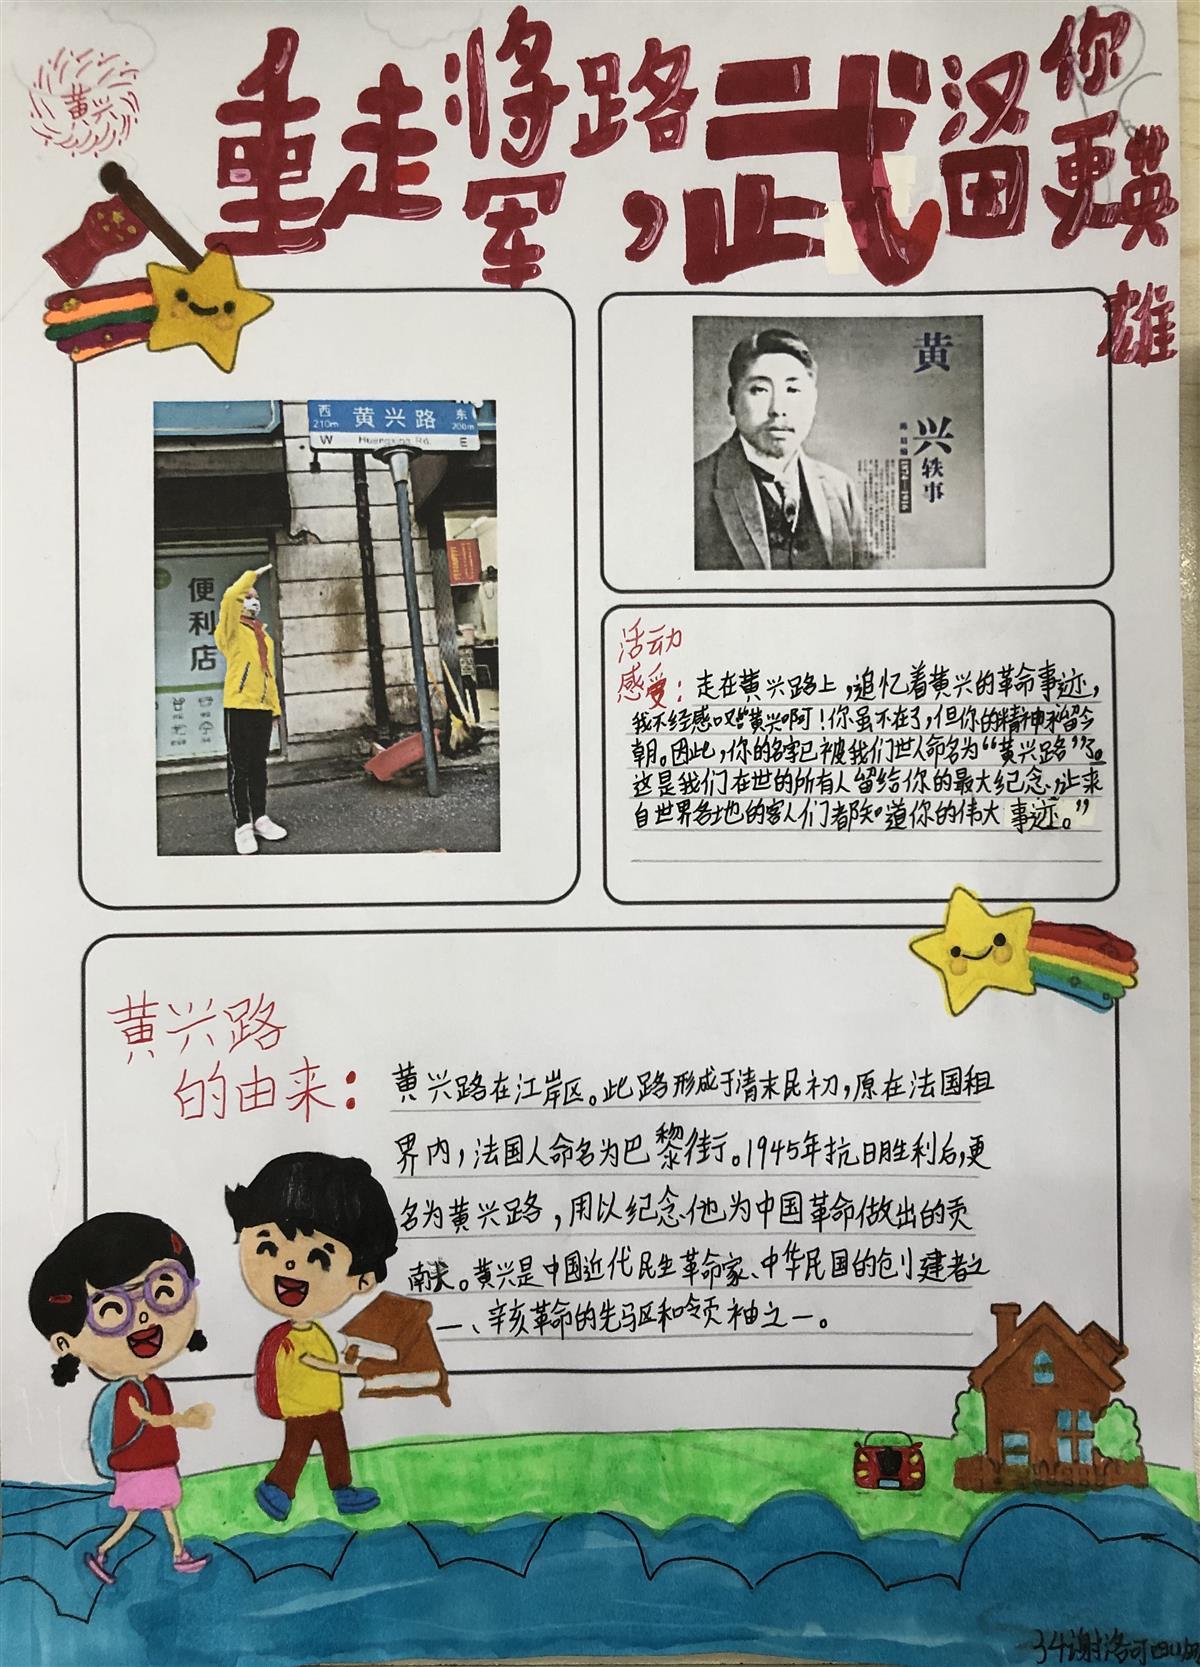 黄兴
重走将军路，武汉因你更英雄
西 210m 黄兴路 东 200m
W Huangxing Rd. E
便利店
黄兴
轶事
1874—1916
活动
感受：走在黄兴路上，追忆着黄兴的革命事迹，
我不经感叹“黄兴啊！你虽不在了，但你的精神永留今
朝。因此，你的名字已被我们世人命名为“黄兴路”了。
这是我们在世的所有人留给你的最大纪念，让来
自世界各地的客人们都知道你的伟大事迹。”
黄兴路
的由来：
黄兴路在江岸区。此路形成于清末民初，原在法国租
界内，法国人命名为巴黎街。1945年抗日胜利后，更
名为黄兴路，用以纪念他为中国革命做出的贡
献。黄兴是中国近代民生革命家、中华民国的创建者之
一、辛亥革命的先驱和领袖之一。
34谢洛可